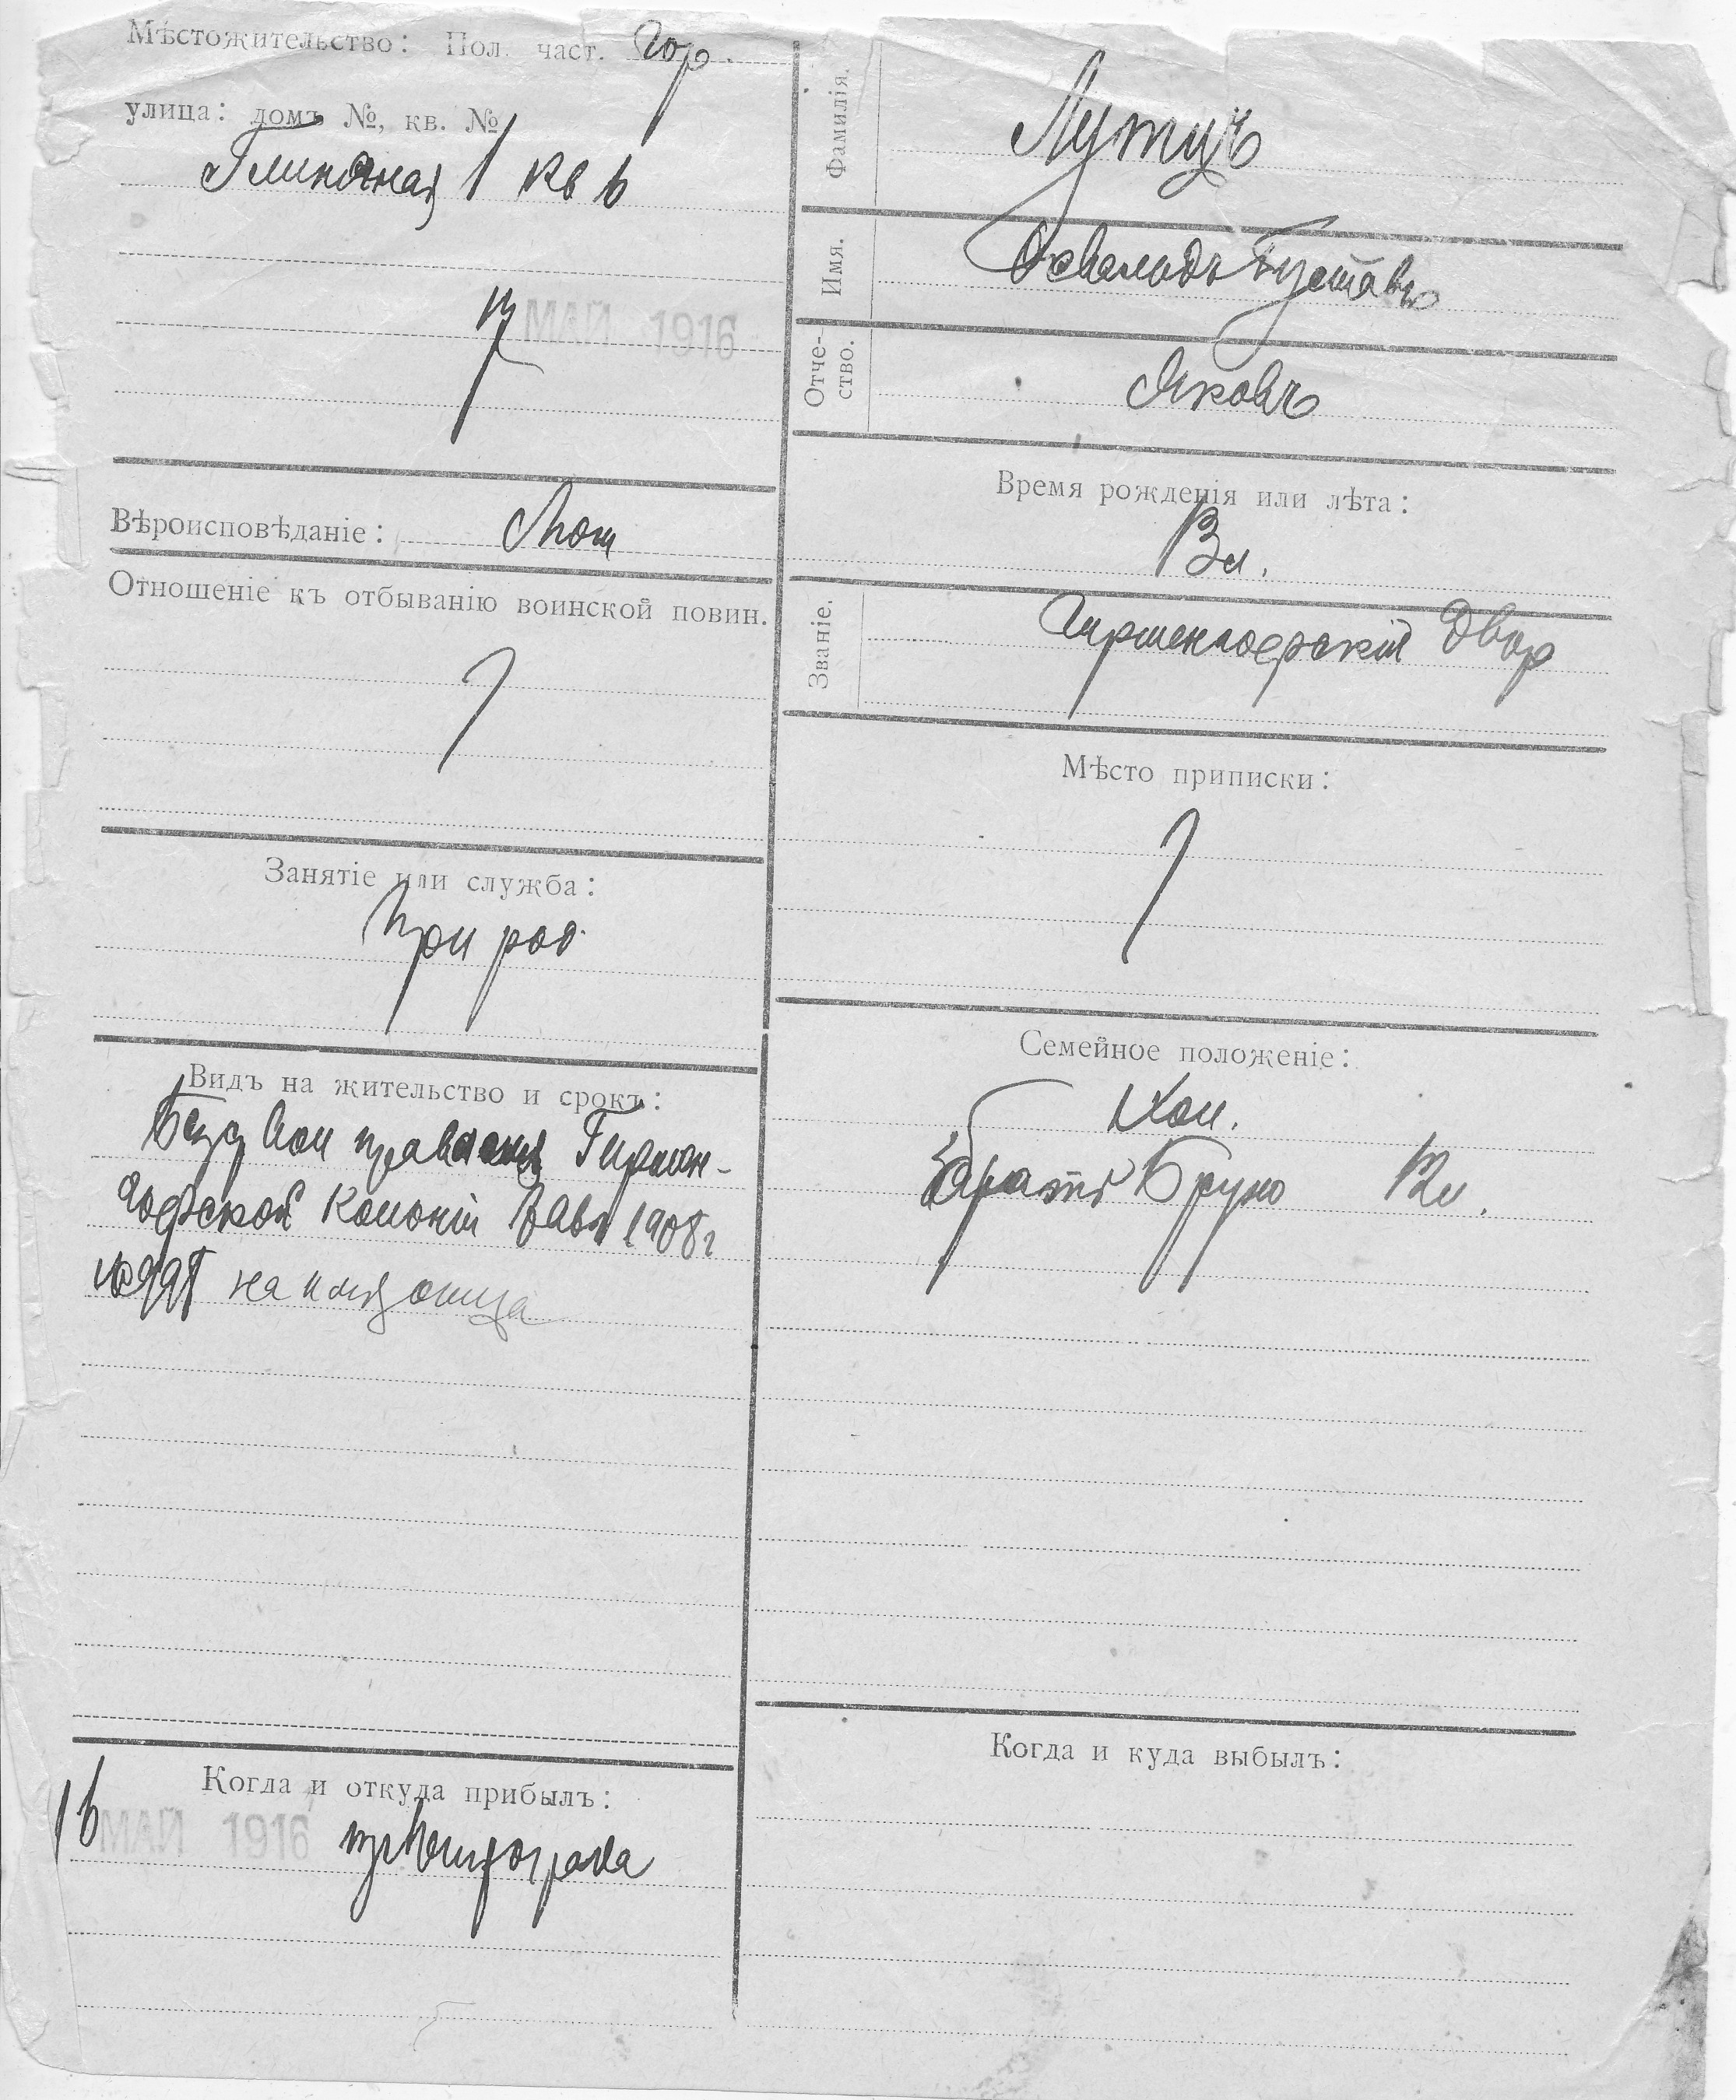 Мѣстожительство: Пол. част. Гор.
улица: домъ №, кв. №
Глиняная 1 кв 6
17 МАЙ 1916
Вѣроисповѣданіе: Лют
Отношеніе къ отбыванію воинской повин.
Занятіе или служба:
При род.
Видъ на жительство и срокъ:
Гиршен-
гофской Колоніи 8 Авг 1908 г
на имя отца
Когда и откуда прибылъ:
16 МАЙ 1916 изъ Петрограда
Фамилія.
Лутцъ
Имя.
Освальдъ Густавъ
Отче-
ство.
Яковъ
Время рожденія или лѣта:
13 л.
Званіе.
Гиршенгофскій Двор
Мѣсто приписки:
Семейное положеніе:
Хол.
братъ Бруно 12 л.
Когда и куда выбылъ: